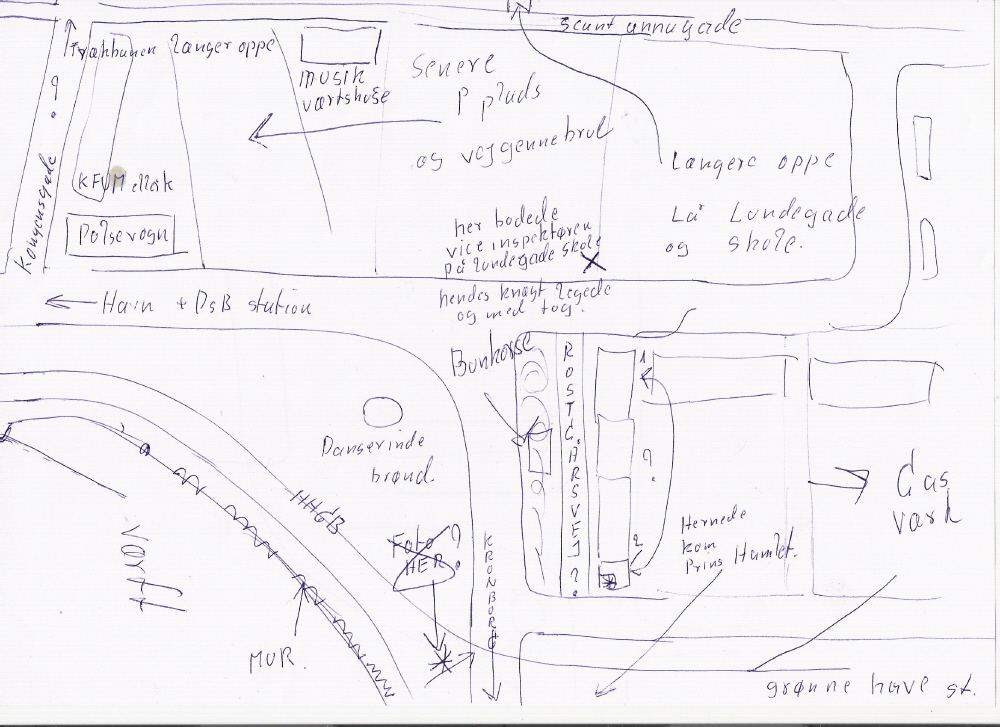 scunt annagade
Trækbanen længer oppe
musik
værtshuse
Senere
P plads
og vejgennebrud
Længere oppe
Lå Lundegade
og skole.
Kongensgade ?
KFUM
Pølsevogn
her boede
vice inspektøren
på Lundegade skole
X
hendes knægt legede
og med tog.
← Havn + DSB station
Bunkerse
ROSTGÅRSVEJ ?
1
?
2
Danserinde
brønd.
HHGB
Foto ?
HER
KRONBORG
Værft
MUR.
Hernede
kom
Prins Hamlet.
Gas
værk
grønne have st.